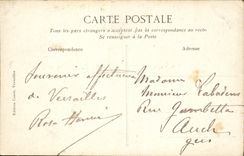 CARTE POSTALE
Tous les pays étrangers n'acceptent pas la correspondance au recto
Se renseigner à la Poste
Correspondance
Adresse
Souvenir affectueux
de Versailles
Rosa
Madame
Monsieur Labadens
Rue Gambetta
Auch
Gers